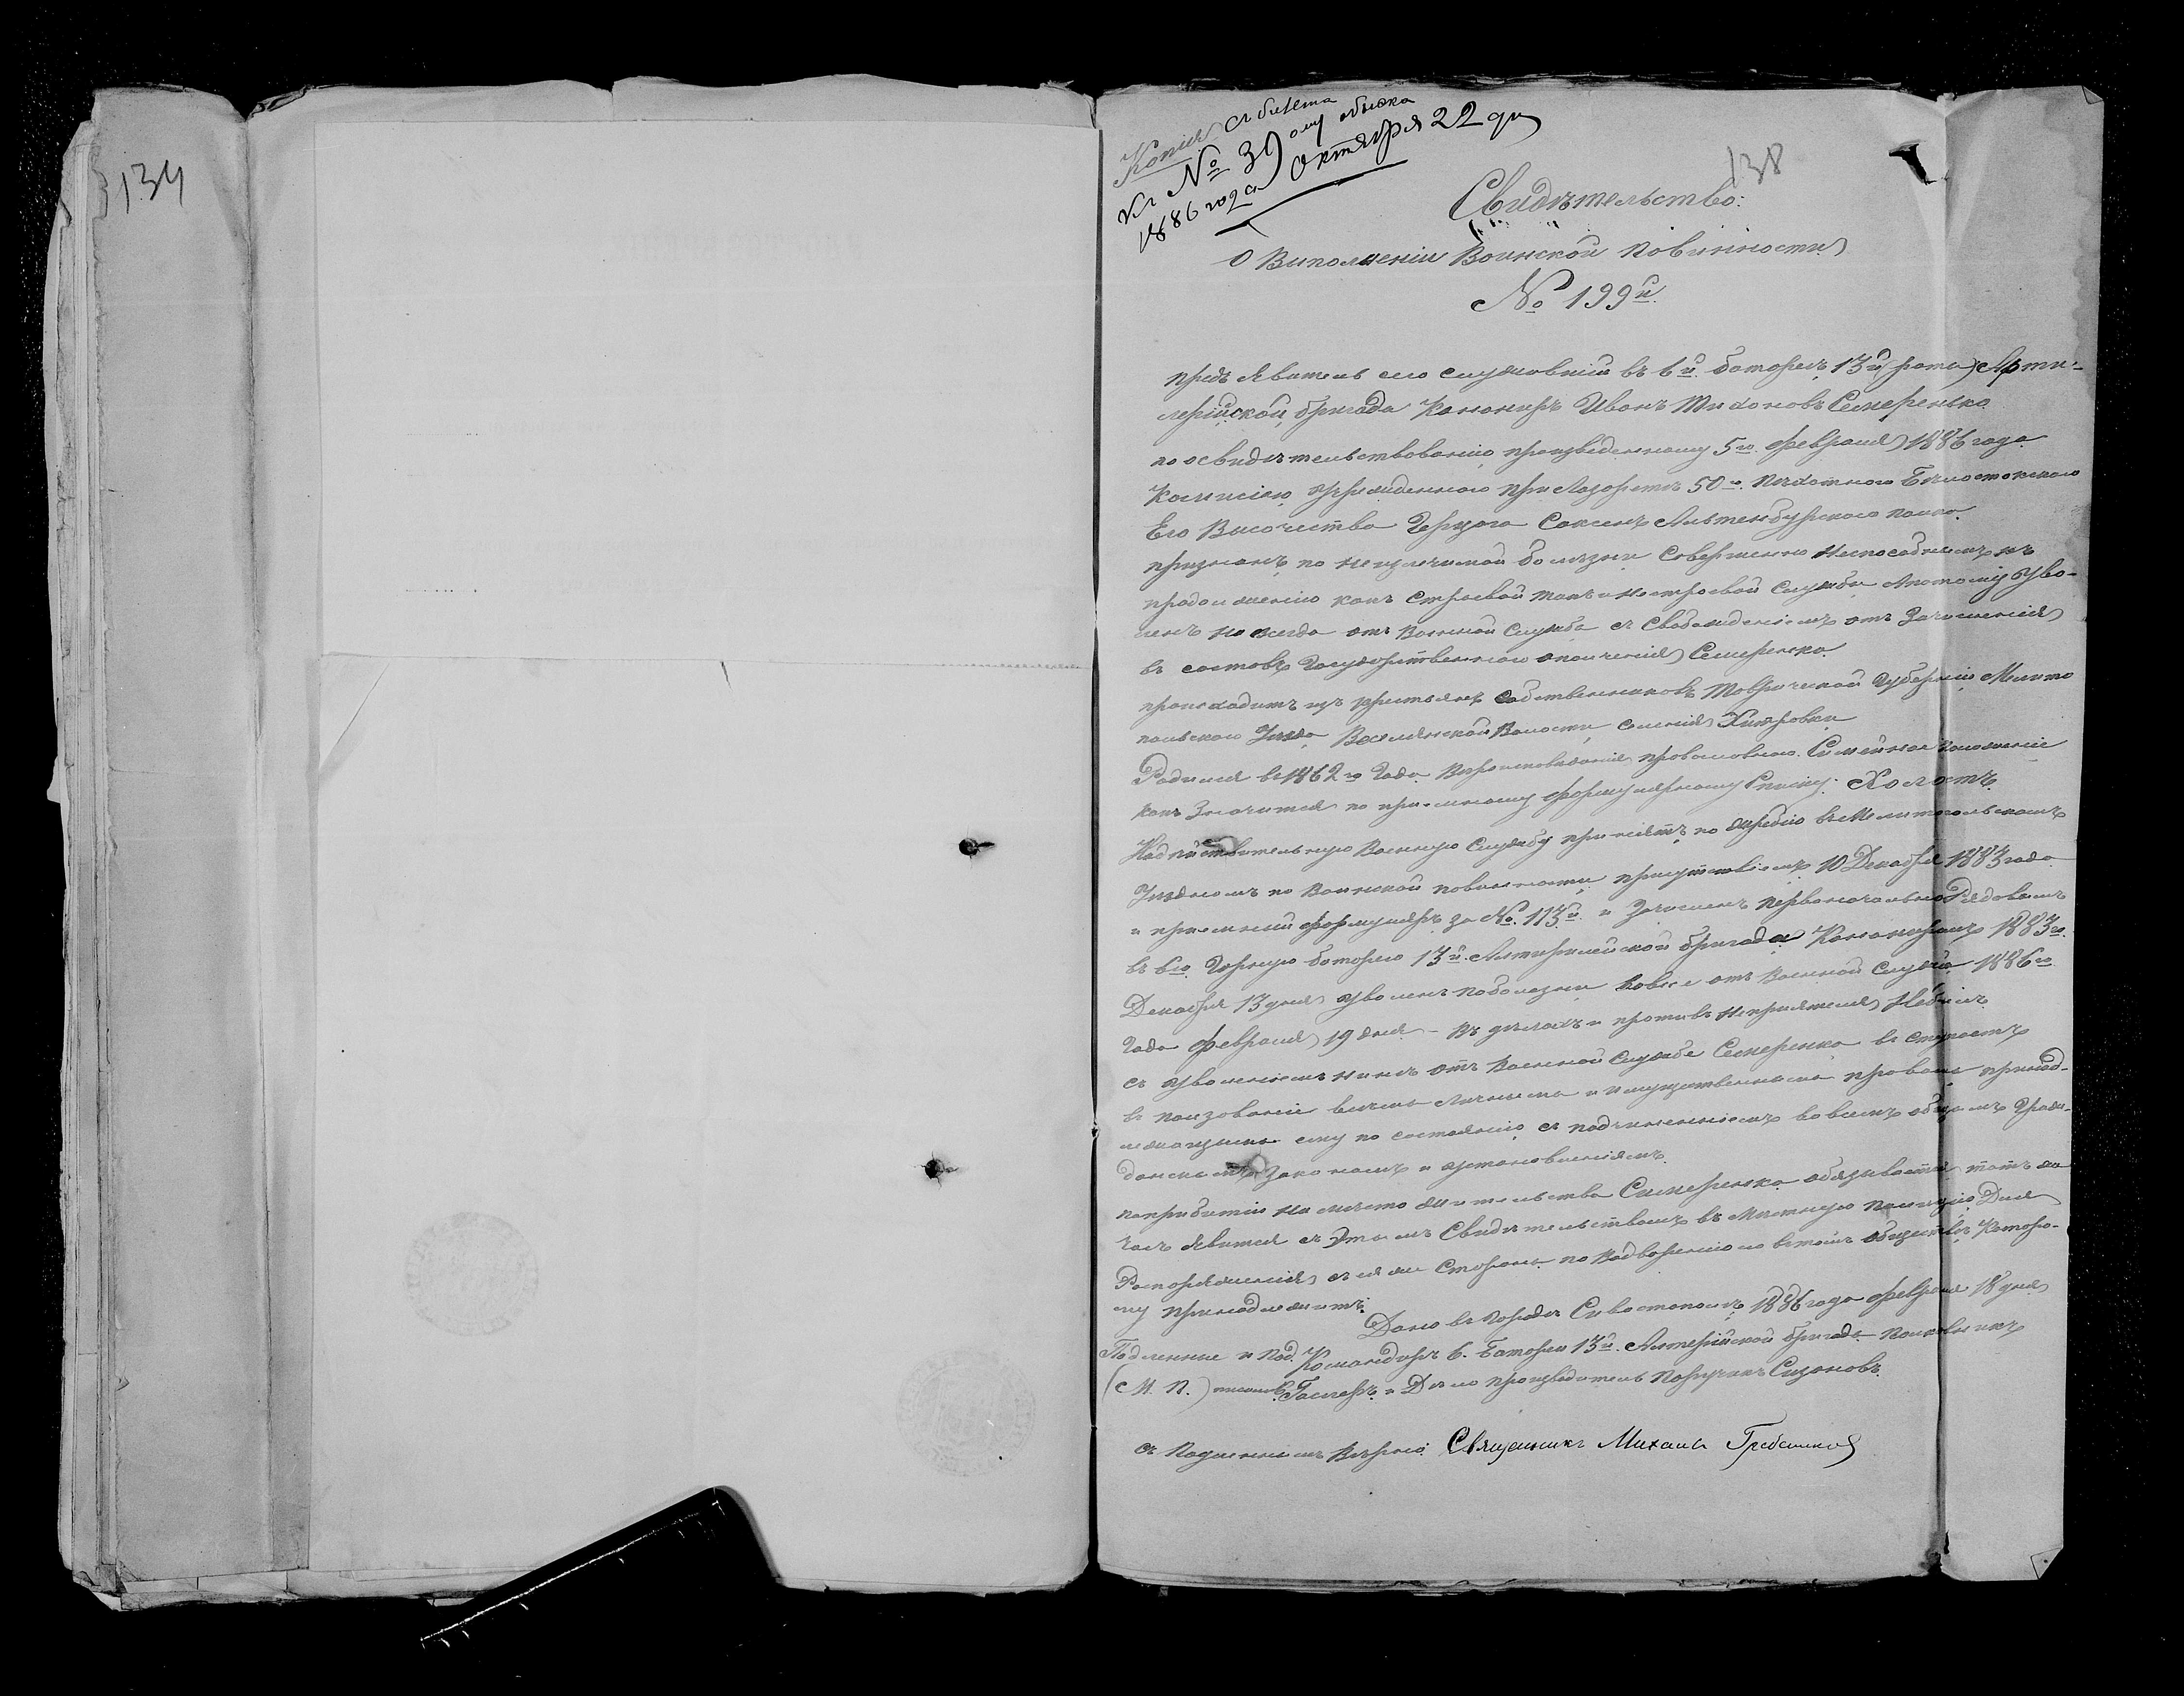 134
Копія съ билета
къ № 39 ому обыска
1886 года Октября 22 дня
138
Свидѣтельство:
О Виполненіи Воинской повинности
№ 199й
предъявитель сего служовшій въ 6й баторее 13й Арти-
лерійской бригада Канониръ Иванъ Тихоновъ Семеренько
по освидѣтельствованію произведенному 5го февраля 1886 года
Комисіею учрежденною при Лазоретѣ 50го пѣхотного Бѣлостокского
Его Височества Герцога Саксенъ Альтенбургского полка
признанъ по неизлечимой болѣзни Совершенно неспособнымъ къ
продолженію какъ строевой такъ и нестроевой Службы Апотому уво-
ленъ навсегда отъ Военной Служба съ Свобождениемъ отъ Зачисления
въ составъ Государственного ополчения Семеренко
происходитъ изъ крестьянъ собственниковъ Тавричекой Губерніи Мелито
польского Уезда Веселянской Волости селения Хитровки
Родился въ 1862го Года Вероисповѣдания православного. Симейное положение
какъ Значится по приемному формулярному Списку: Холостъ
На дѣйствительную Военную Службу принятъ по жребію въ Мелитопольскомъ
Уездномъ по Воинской повинности присутствіемъ 10 Декабря 1883 года
и приемний формуляръ за № 113й и Зачисленъ первоначально Рядовымъ
въ 6ю Горную баторею 13й Артирилейской бригада Канониромъ 1883го
Декабря 13 дня уволенъ по болезни вовсе отъ Военной Служби 1886го
Года февраля 19 дня – Въ дѣлахъ и противъ неприятеля Небылъ
съ увольнениемъ нынѣ отъ Военной Службе Семеренко вступаетъ
въ ползованіе всѣми личными и имущественными правами принад-
лежащими ему по состоянию съ подчинениемъ во всемъ общимъ Граж-
данскимъ законамъ и установлениямъ
по прибытіи на место жительства Симеренко обязивается тотъ же
часъ явится съ Этимъ Свидѣтельствомъ въ Мѣстную полицию Для
Распоряжения съ ея же Стороны по Водворению его вътомъ обществѣ Которо-
му принадлежитъ.
Дано въ городе Сивостополѣ 1886 года февраля 18 дня
Подленные и Под. Командиръ 6. Баторее 13й Артилерійской бригада Полковникъ
(М. П.) писали: и Дѣло производитель Поручикъ
съ Подленнымъ Вѣрно: Священникъ Михаилъ Гребенников